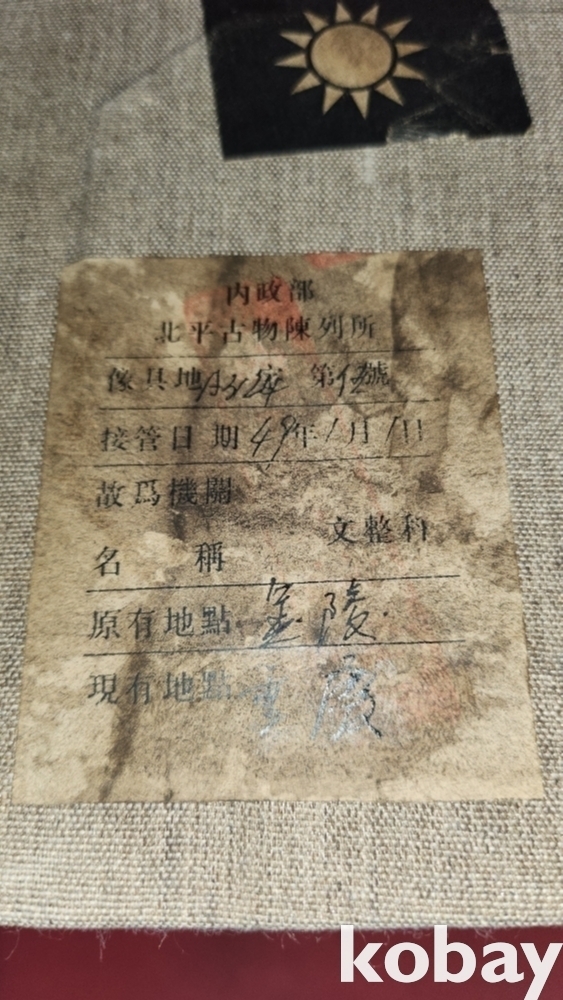 内政部
北平古物陳列所
傢具地 第 號
接管日期49年1月1日
故爲機關
文整科
名稱
原有地點 金陵
現有地點 金陵
kobay